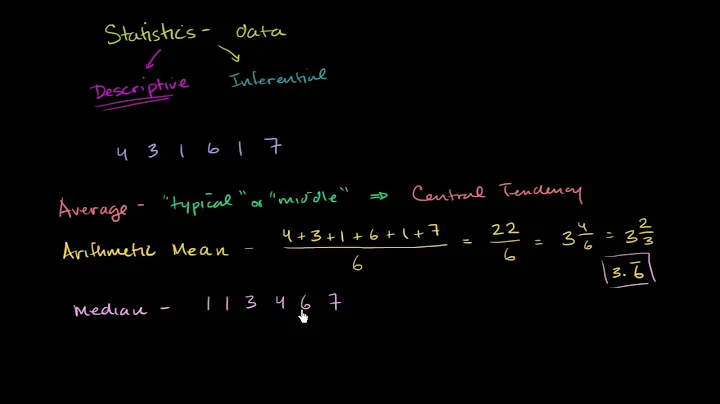 Statistics - data
Descriptive Inferential
4 3 1 6 1 7
Average - "typical" or "middle" ⇒ Central Tendency
Arithmetic Mean - (4+3+1+6+1+7)/6 = 22/6 = 3 4/6 = 3 2/3
3.6̅
Median - 1 1 3 4 6 7